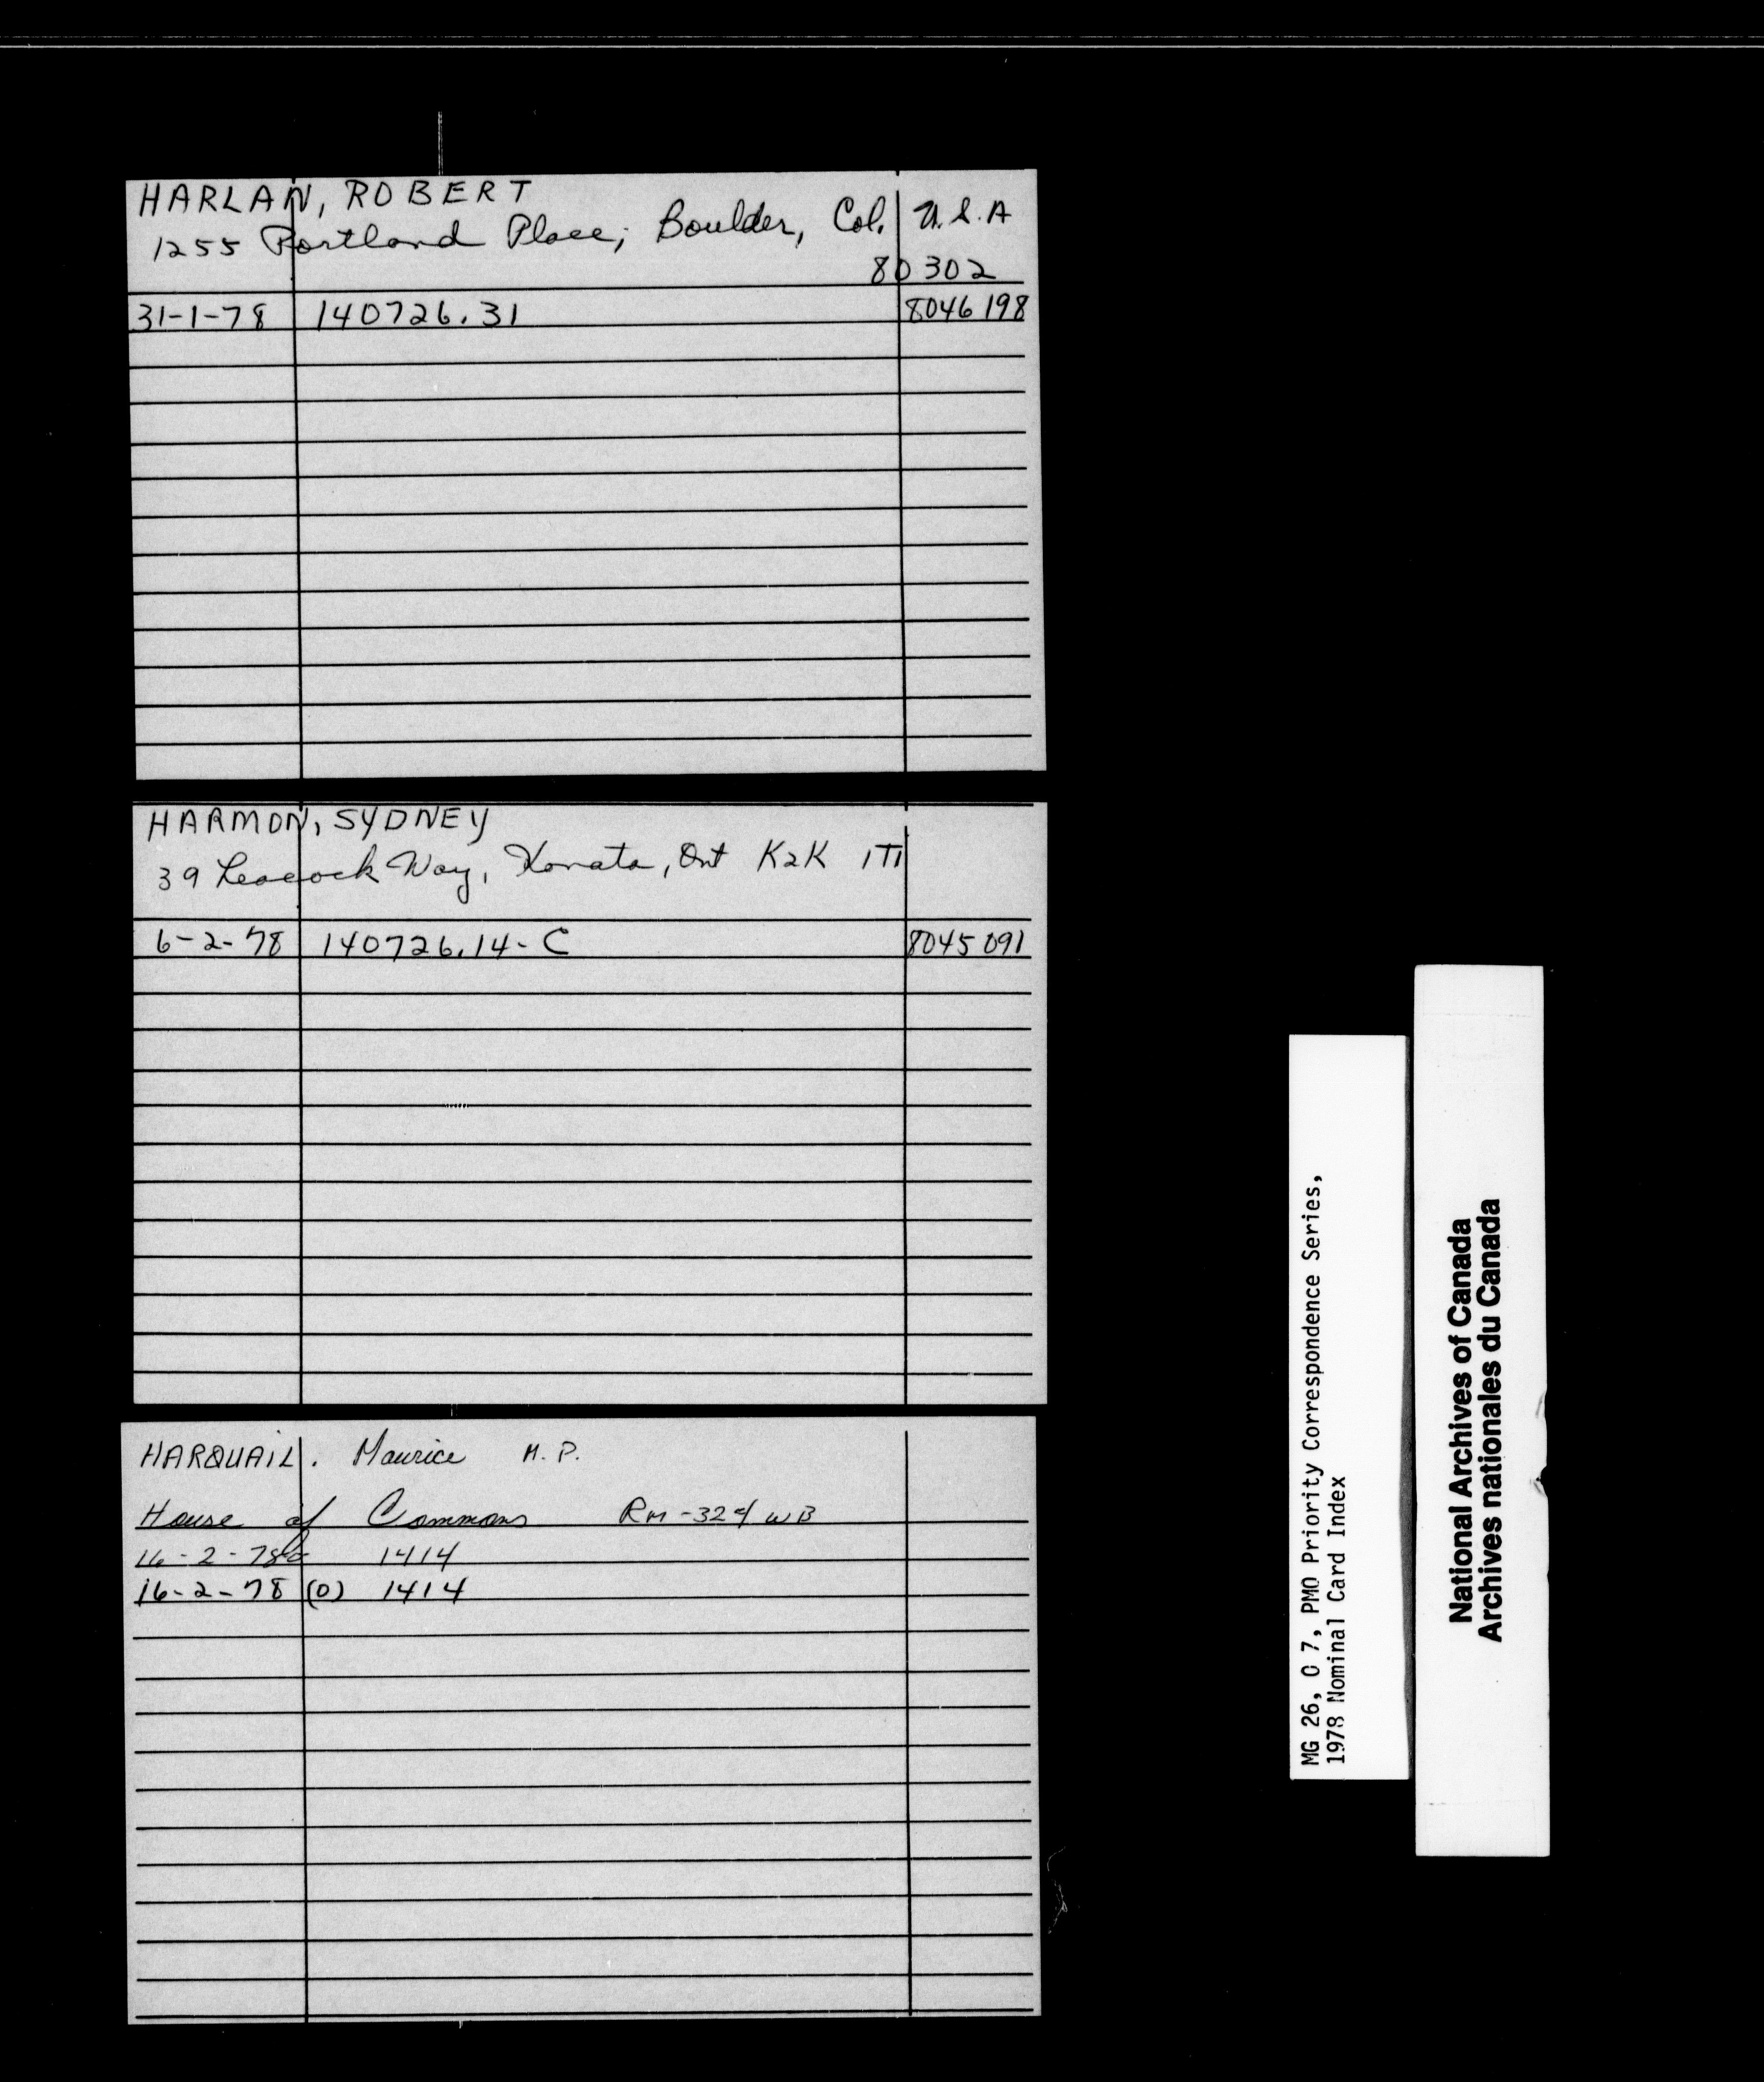 HARLAN, ROBERT
1255 Portland Place, Boulder, Col. U.S.A
80302
31-1-78 140726.31 8046198
HARMON, SYDNEY
39 Leacock Way, Kanata, Ont K2K 1T1
6-2-78 140726.14-C 8045091
HARQUAIL. Maurice M.P.
House of Commons Rm-324 WB
16-2-78 1414
16-2-78 (0) 1414
MG 26, O 7, PMO Priority Correspondence Series,
1978 Nominal Card Index
National Archives of Canada
Archives nationales du Canada